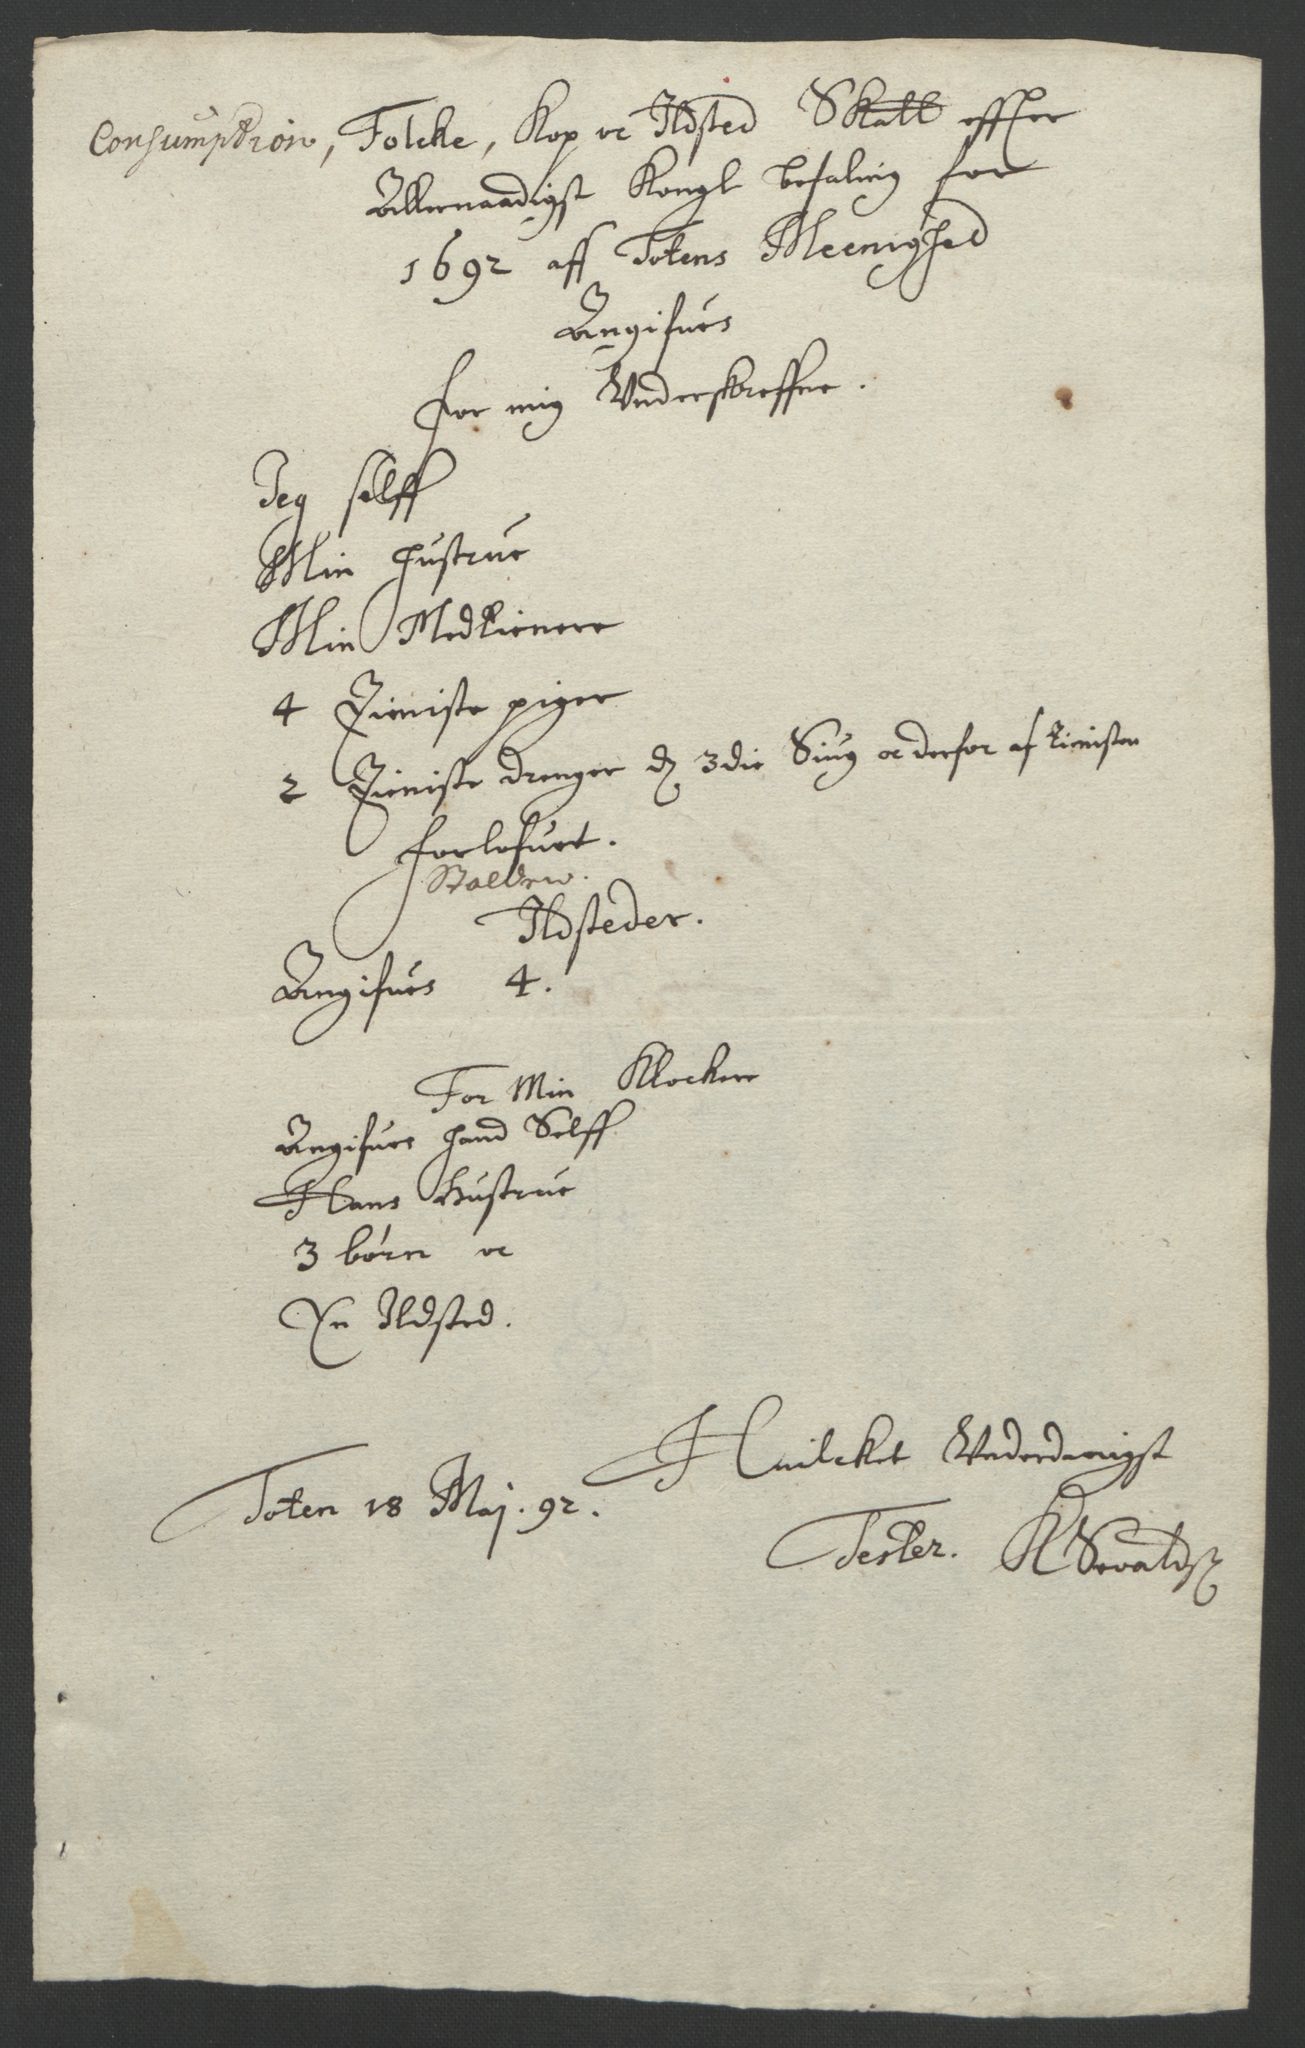 Consumption, Folcke, Kop oc Ildsted Skatt effter
Allernaadigst Kongl befaling for
1692 aff Totens Meenighed
Angifues
for mig Underskreffne.
Jeg selff
Min hustrue
Min Medtienere
4 Tieniste piger
2 Tieniste drenger d 3die Siug oc derfor af tienisten
forlofuet.
Ildsteder.
Angifues 4.
For Min Klocker
Angifues hand Selff
Hans Hustrue
3 børn oc
En Ildsted.
Huilcket Underdanigst
Toten 18 Maj. 92.
Tester. K Sevaldß